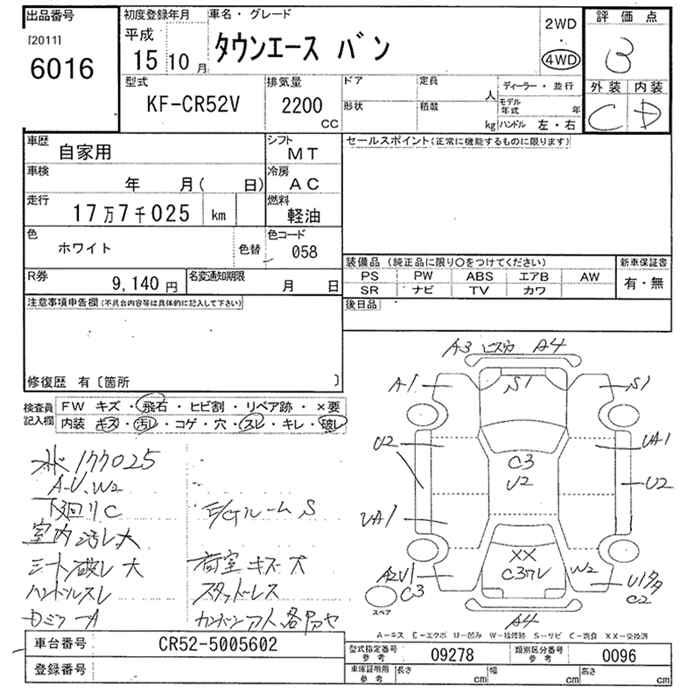 出品番号
[2011]
6016
初度登録年月
平成
15年10月
車名・グレード
タウンエース バン
2WD
・
4WD
評価点
B
外装 内装
C D
型式
KF-CR52V
排気量
2200
CC
ドア
定員
人
形状
積載
kg
ディーラー・並行
モデル年式 年
ハンドル 左・右
車歴
自家用
シフト
MT
車検
年 月( 日)
冷房
AC
走行
17万7千025 km
燃料
軽油
色
ホワイト
色替
色コード
058
R券
9,140円
名変通知期限
月 日
セールスポイント(正常に機能するものに限ります)
装備品(純正品に限り○をつけてください)
PS PW ABS エアB AW
SR ナビ TV カワ
新車保証書
有・無
後日品
注意事項申告欄(不具合内容等は具体的に記入して下さい)
修復歴 有〔箇所 〕
検査員記入欄
FW キズ・飛石・ヒビ割・リペア跡・×要
内装 キズ・汚レ・コゲ・穴・スレ・キレ・破レ
177025
A-U、W2
下廻りC
室内汚レ大
シート破レ大
ハンドルスレ
E/Gルーム S
荷室キズ大
スタッドレス
A3 ビスカ A4
A1 S1 S1
U2 UA1
C3
U2
U2
UA1
XX
C3ワレ
W2
A2U1
C3
スペア
C2
A4
A-キズ E-エクボ U-凹み W-補修跡 S-サビ C-腐食 XX-交換済
車台番号
CR52-5005602
登録番号
型式指定番号
参考
09278
類別区分番号
参考
0096
車庫証明用
参考
長さ cm
幅 cm
高さ cm